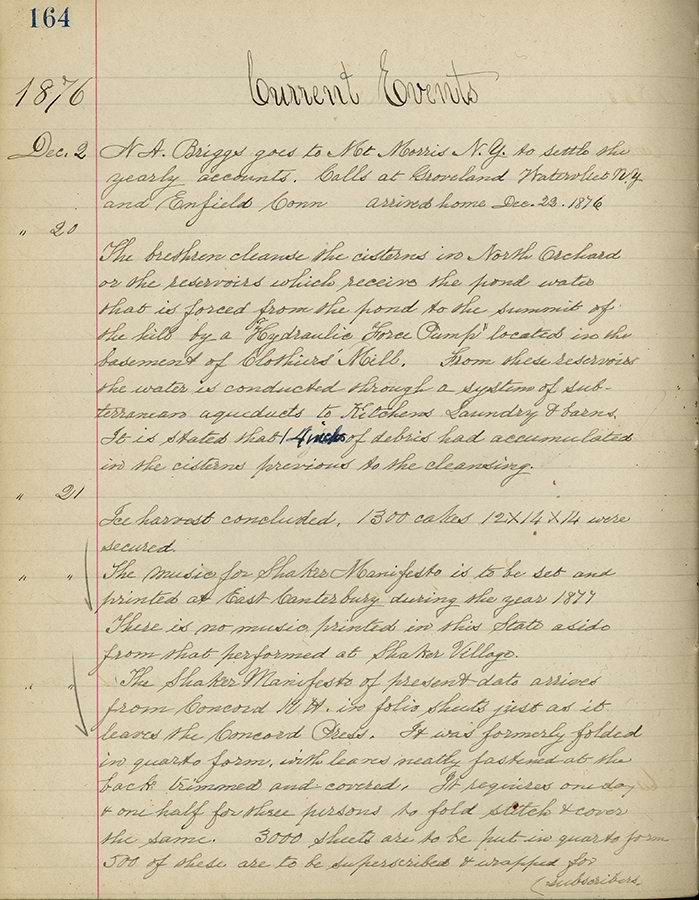 164
Current Events
1876
Dec. 2 N A. Briggs goes to Mt Morris N.Y. to settle the
yearly accounts. Calls at Groveland Watervliet N.Y.
and Enfield Conn arrived home Dec. 23. 1876
" 20
The brethren cleanse the cisterns in North Orchard
or the reservoirs which receive the pond water
that is forced from the pond to the summit of
the hill by a "Hydraulic Force Pump" located in the
basement of Clothiers' Mill. From these reservoirs
the water is conducted through a system of sub-
terranean aqueducts to Kitchens Laundry & barns.
It is stated that 14 inches of debris had accumulated
in the cisterns previous to the cleansing.
" 21
Ice harvest concluded. 1300 cakes 12X14X14 were
secured.
" " The music for Shaker Manifesto is to be set and
printed at East Canterbury during the year 1877
There is no music printed in this State aside
from that performed at Shaker Village.
" " The Shaker Manifesto of present date arrives
from Concord N.H. in folio sheets just as it
leaves the Concord Press. It was formerly folded
in quarto form, with leaves neatly fastened at the
back trimmed and covered. It requires one day
& one half for three persons to fold stitch & cover
the same. 3000 sheets are to be put in quarto form
500 of these are to be superscribed & wrapped for
(subscribers.